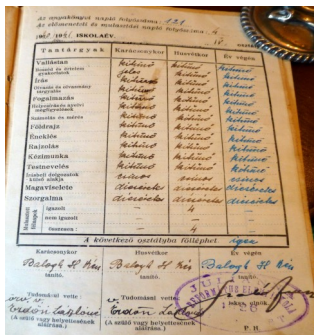 Az anyakönyvi napló folyószáma: 121
Az előmeneteli és mulasztási napló folyószáma: 4
19 19 ISKOLAÉV.
Tantárgyak Karácsonykor Húsvétkor Év végén
Vallástan kitűnő kitűnő kitűnő
Beszéd és értelem gyakorlatok jeles kitűnő kitűnő
Írás kitűnő kitűnő kitűnő
Olvasás és olvasmány tárgyalás kitűnő kitűnő kitűnő
Fogalmazás kitűnő kitűnő kitűnő
Helyesírás és nyelvi magyarázatok kitűnő kitűnő kitűnő
Számolás és mérés kitűnő kitűnő kitűnő
Földrajz kitűnő kitűnő kitűnő
Éneklés kitűnő kitűnő kitűnő
Rajzolás kitűnő kitűnő kitűnő
Kézimunka kitűnő kitűnő kitűnő
Testnevelés kitűnő kitűnő kitűnő
Írásbeli dolgozatok külső alakja csinos csinos csinos
Magaviselete dicséretes dicséretes dicséretes
Szorgalma dicséretes dicséretes dicséretes
igazolt – 4
nem igazolt – –
összesen – 4
A következő osztályba fölléphet igen
Karácsonykor Húsvétkor Év végén
Balogh H Balogh H Balogh H
tanító. tanító. tanító.
Tudomásul vette: Tudomásul vette:
Erdőn Lászlóné Erdőn Lászlóné
(A szülő vagy helyettesének aláírása.) (A szülő vagy helyettesének aláírása.)
P. H.